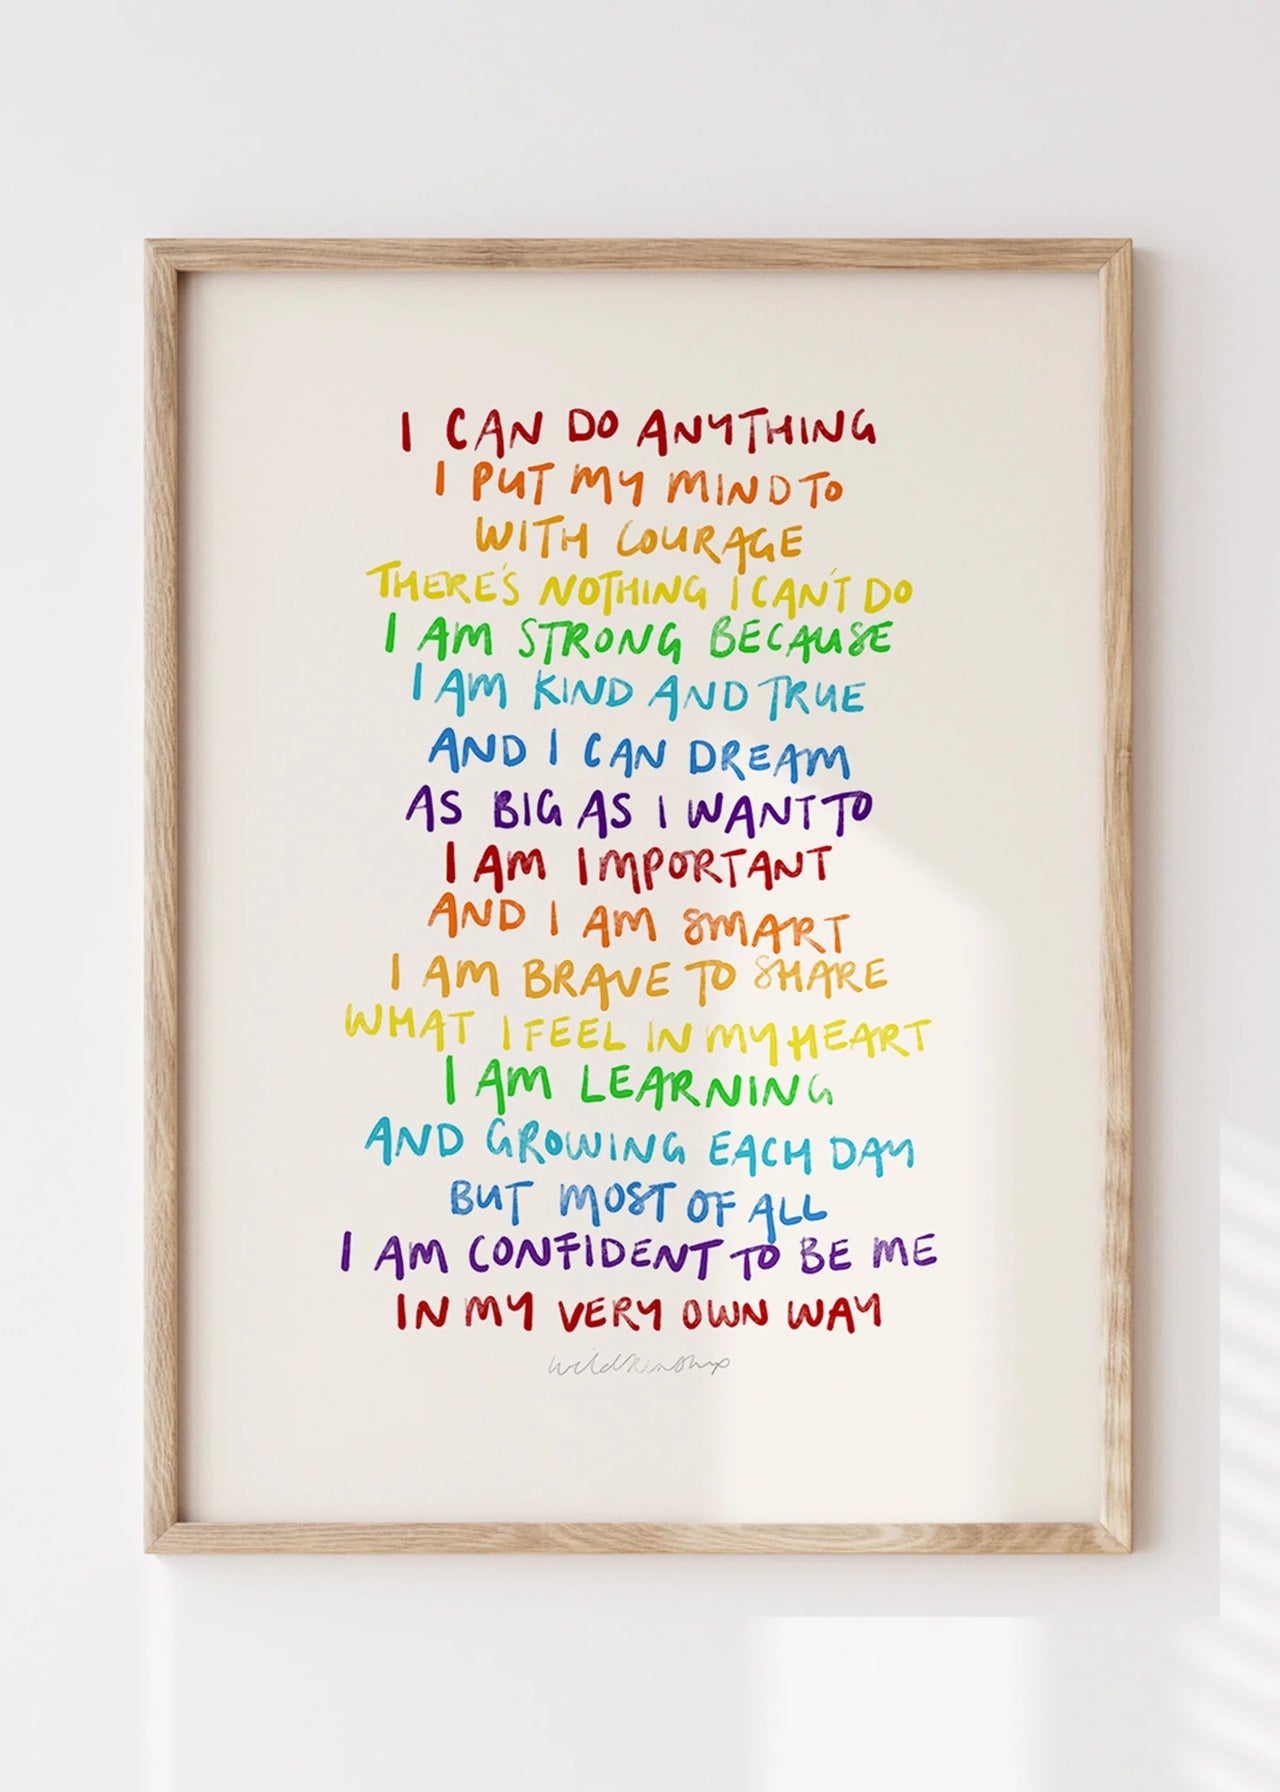 I CAN DO ANYTHING
I PUT MY MIND TO
WITH COURAGE
THERE'S NOTHING I CAN'T DO
I AM STRONG BECAUSE
I AM KIND AND TRUE
AND I CAN DREAM
AS BIG AS I WANT TO
I AM IMPORTANT
AND I AM SMART
I AM BRAVE TO SHARE
WHAT I FEEL IN MY HEART
I AM LEARNING
AND GROWING EACH DAY
BUT MOST OF ALL
I AM CONFIDENT TO BE ME
IN MY VERY OWN WAY
wildkinship